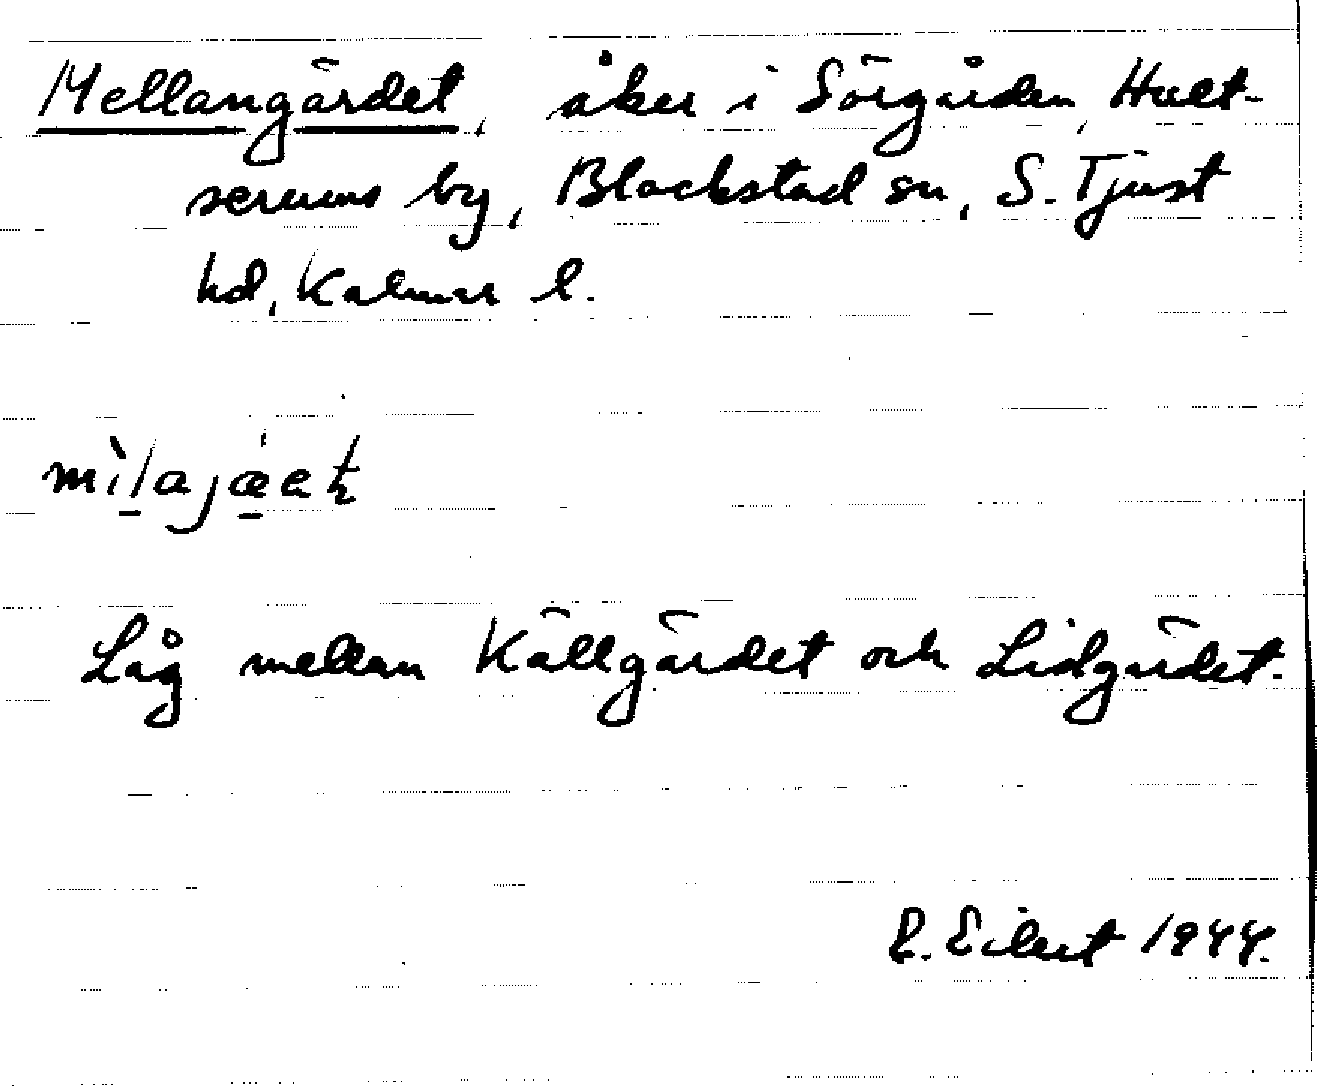 Mellangärdet, åker i Sörgården, Hult-
serums by, Blackstad sn, S. Tjust
hd, Kalmar l.
Låg mellan Källgärdet och Lidgärdet.
E. Eilert 1944.